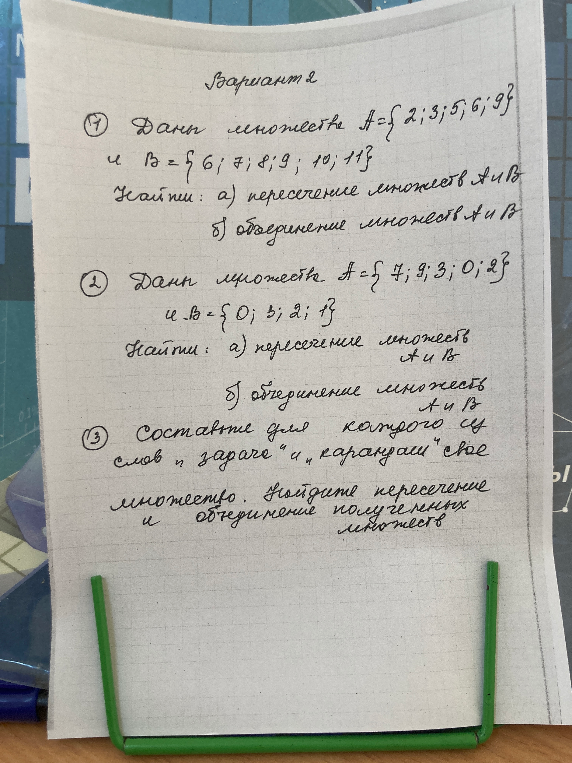 Вариант 2
① Даны множества A={2;3;5;6;9}
и B={6;7;8;9;10;11}
Найти: а) пересечение множеств A и B
б) объединение множеств A и B
② Даны множества A={7;9;3;0;2}
и B={0;3;2;1}
Найти: а) пересечение множеств
A и B
б) объединение множеств
A и B
③ Составьте для каждого из
слов „задача" и „карандаш" свое
множество. Найдите пересечение
и объединение полученных
множеств